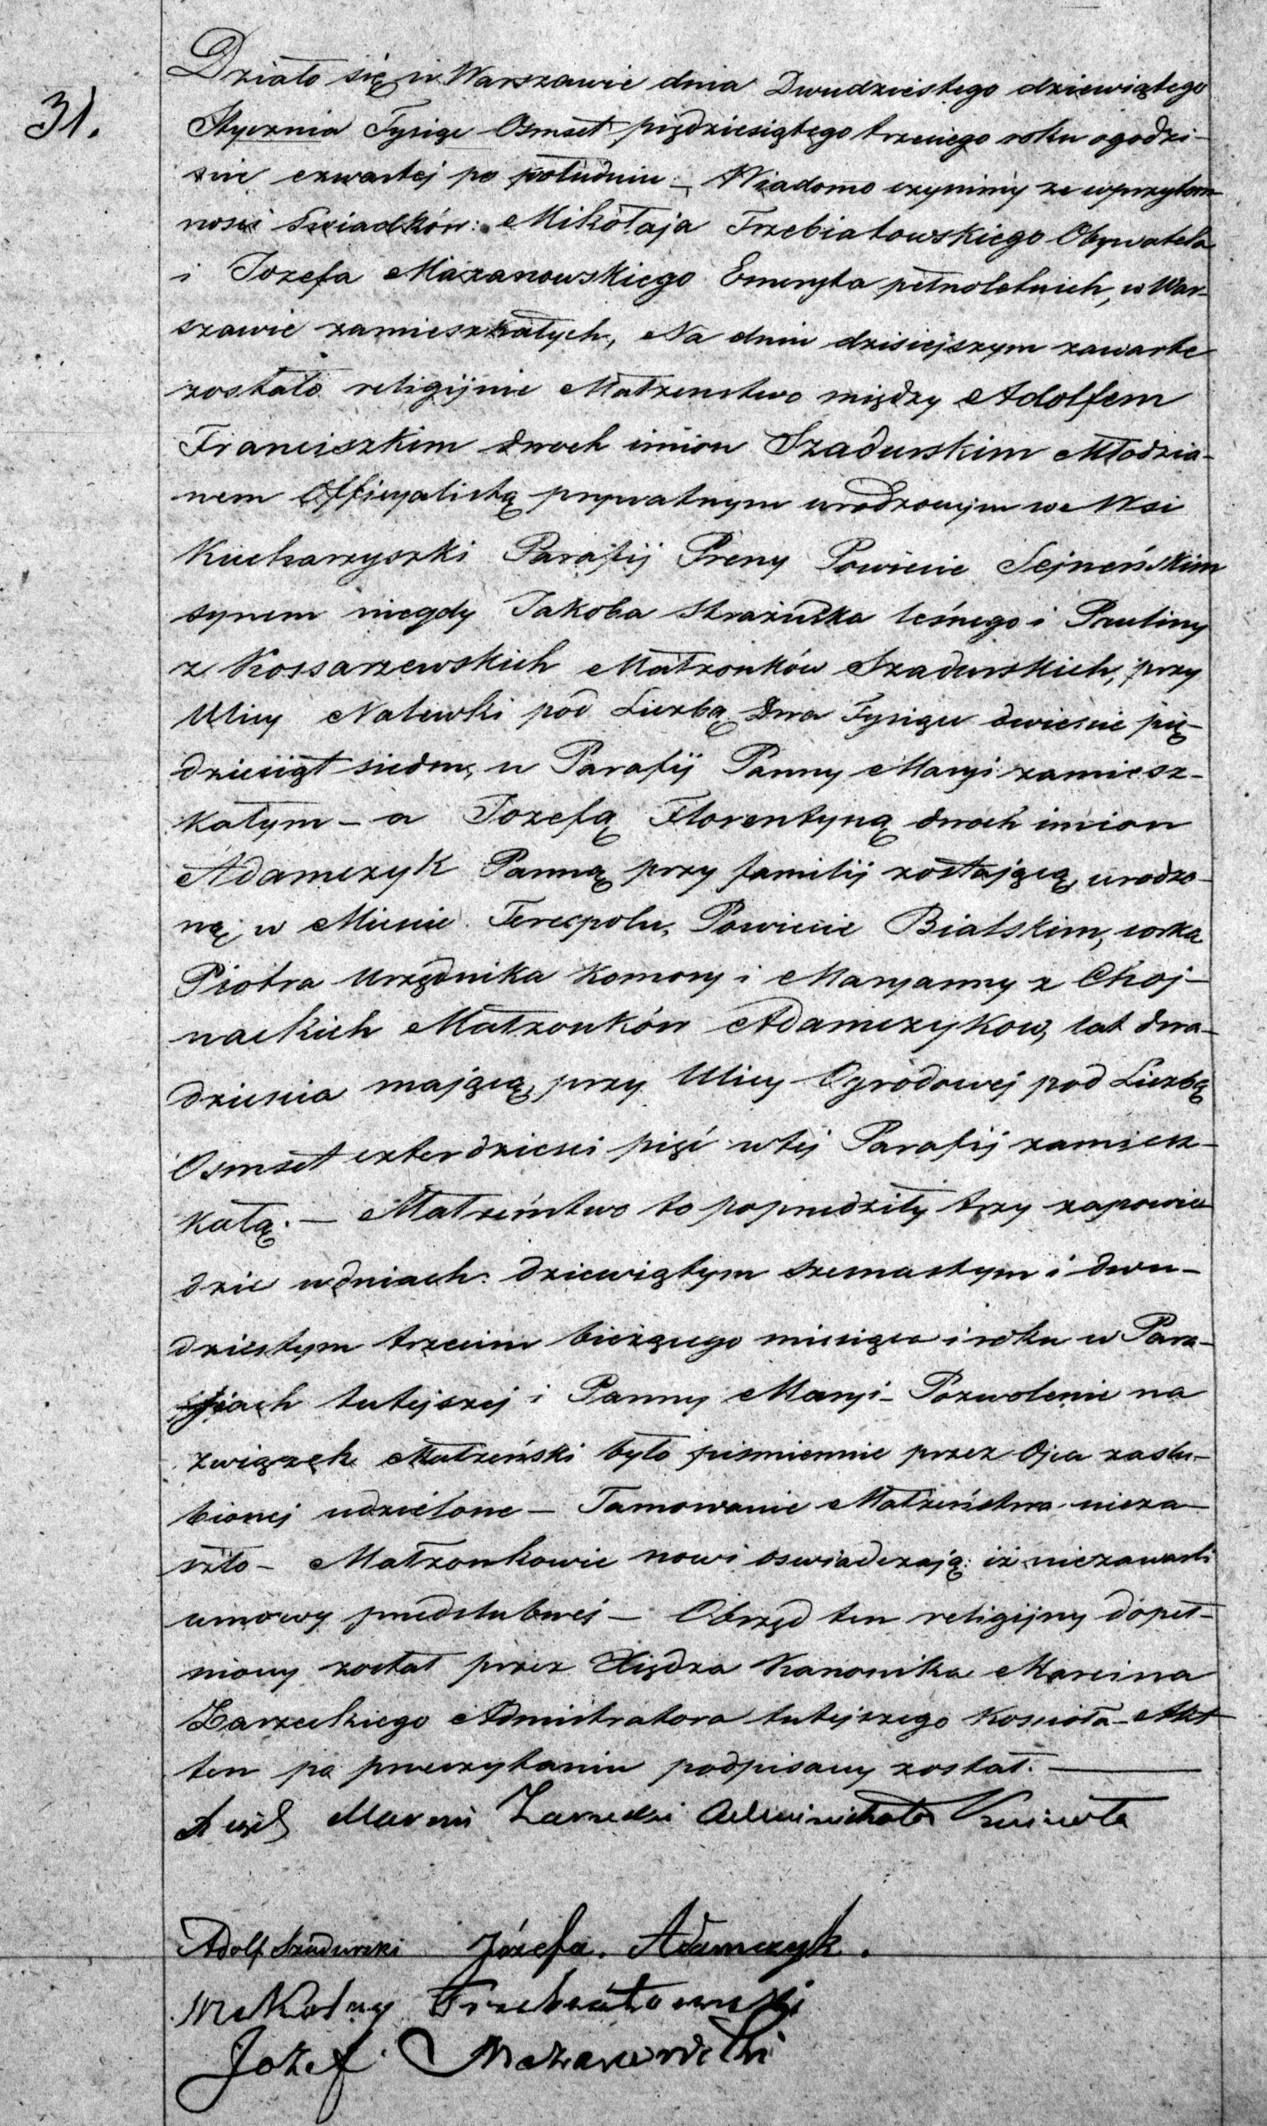 31.
Działo się w Warszawie dnia Dwudziestego dziewiątego
Stycznia Tysiąc Osmset pięćdziesiątego trzeciego roku o godzi-
nie czwartej po południu – Wiadomo czynimy że w przytom
ności Swiadków: Mikołaja Trzebiatowskiego Obywatela
i Jozefa Mazanowskiego Emeryta pełnoletnich, w War-
szawie zamieszkałych, Na dniu dzisiejszym zawarte
zostało religijnie Małżenstwo między Adolfem
Franciszkim dwoch imion Szadurskim Młodzia-
nem Officyalistą prywatnym urodzonym we Wsi
Kucharzyszki Parafij Preny Powiecie Sejneńskim
synem niegdy Jakoba Strażnika leśnego i Pauliny
z Kossarzewskich Małżonków Szadurskich, przy
Ulicy Nalewki pod Liczbą Dwa Tysiące dwieście pię-
dziesiąt siedm, w Parafij Panny Maryi zamiesz-
kałym – a Jozefą Florentyną dwoch imion
Adamczyk Panną przy familij zostającą, urodzo-
ną w Mieście Terespolu, Powiecie Bialskim, corka
Piotra Urzędnika Komory i Maryanny z Choj-
nackich Małżonków Adamczykow, lat dwa-
dzieścia mającą, przy Ulicy Ogrodowej pod Liczbą
Osmset czterdzieści pięć w tej Parafij zamiesz-
kałą. – Małżeństwo to poprzedziły trzy zapowie
dzie w dniach: dziewiątym szesnastym i dwu-
dziestym trzecim bieżącego miesiąca i roku w Para-
fijach tutejszej i Panny Maryi – Pozwolenie na
związek Małżeński było piśmiennie przez Ojca zaślu-
bionej udzielone – Tamowanie Małżeństwa nieza-
szło – Małżonkowie nowi oswiadczają: iż niezawarli
umowy przedślubnej – Obrzęd ten religijny dopeł-
niony został przez Xiędza Kanonika Marcina
Zarzeckiego Admistratora tutejszego Kościoła – Akt
ten po przeczytaniu podpisany został.
Marcin Zarzecki Administrator
Adolf Szadurski Józefa Adamczyk.
Mikołay Trzebiatowski
Jozef Mazanowski